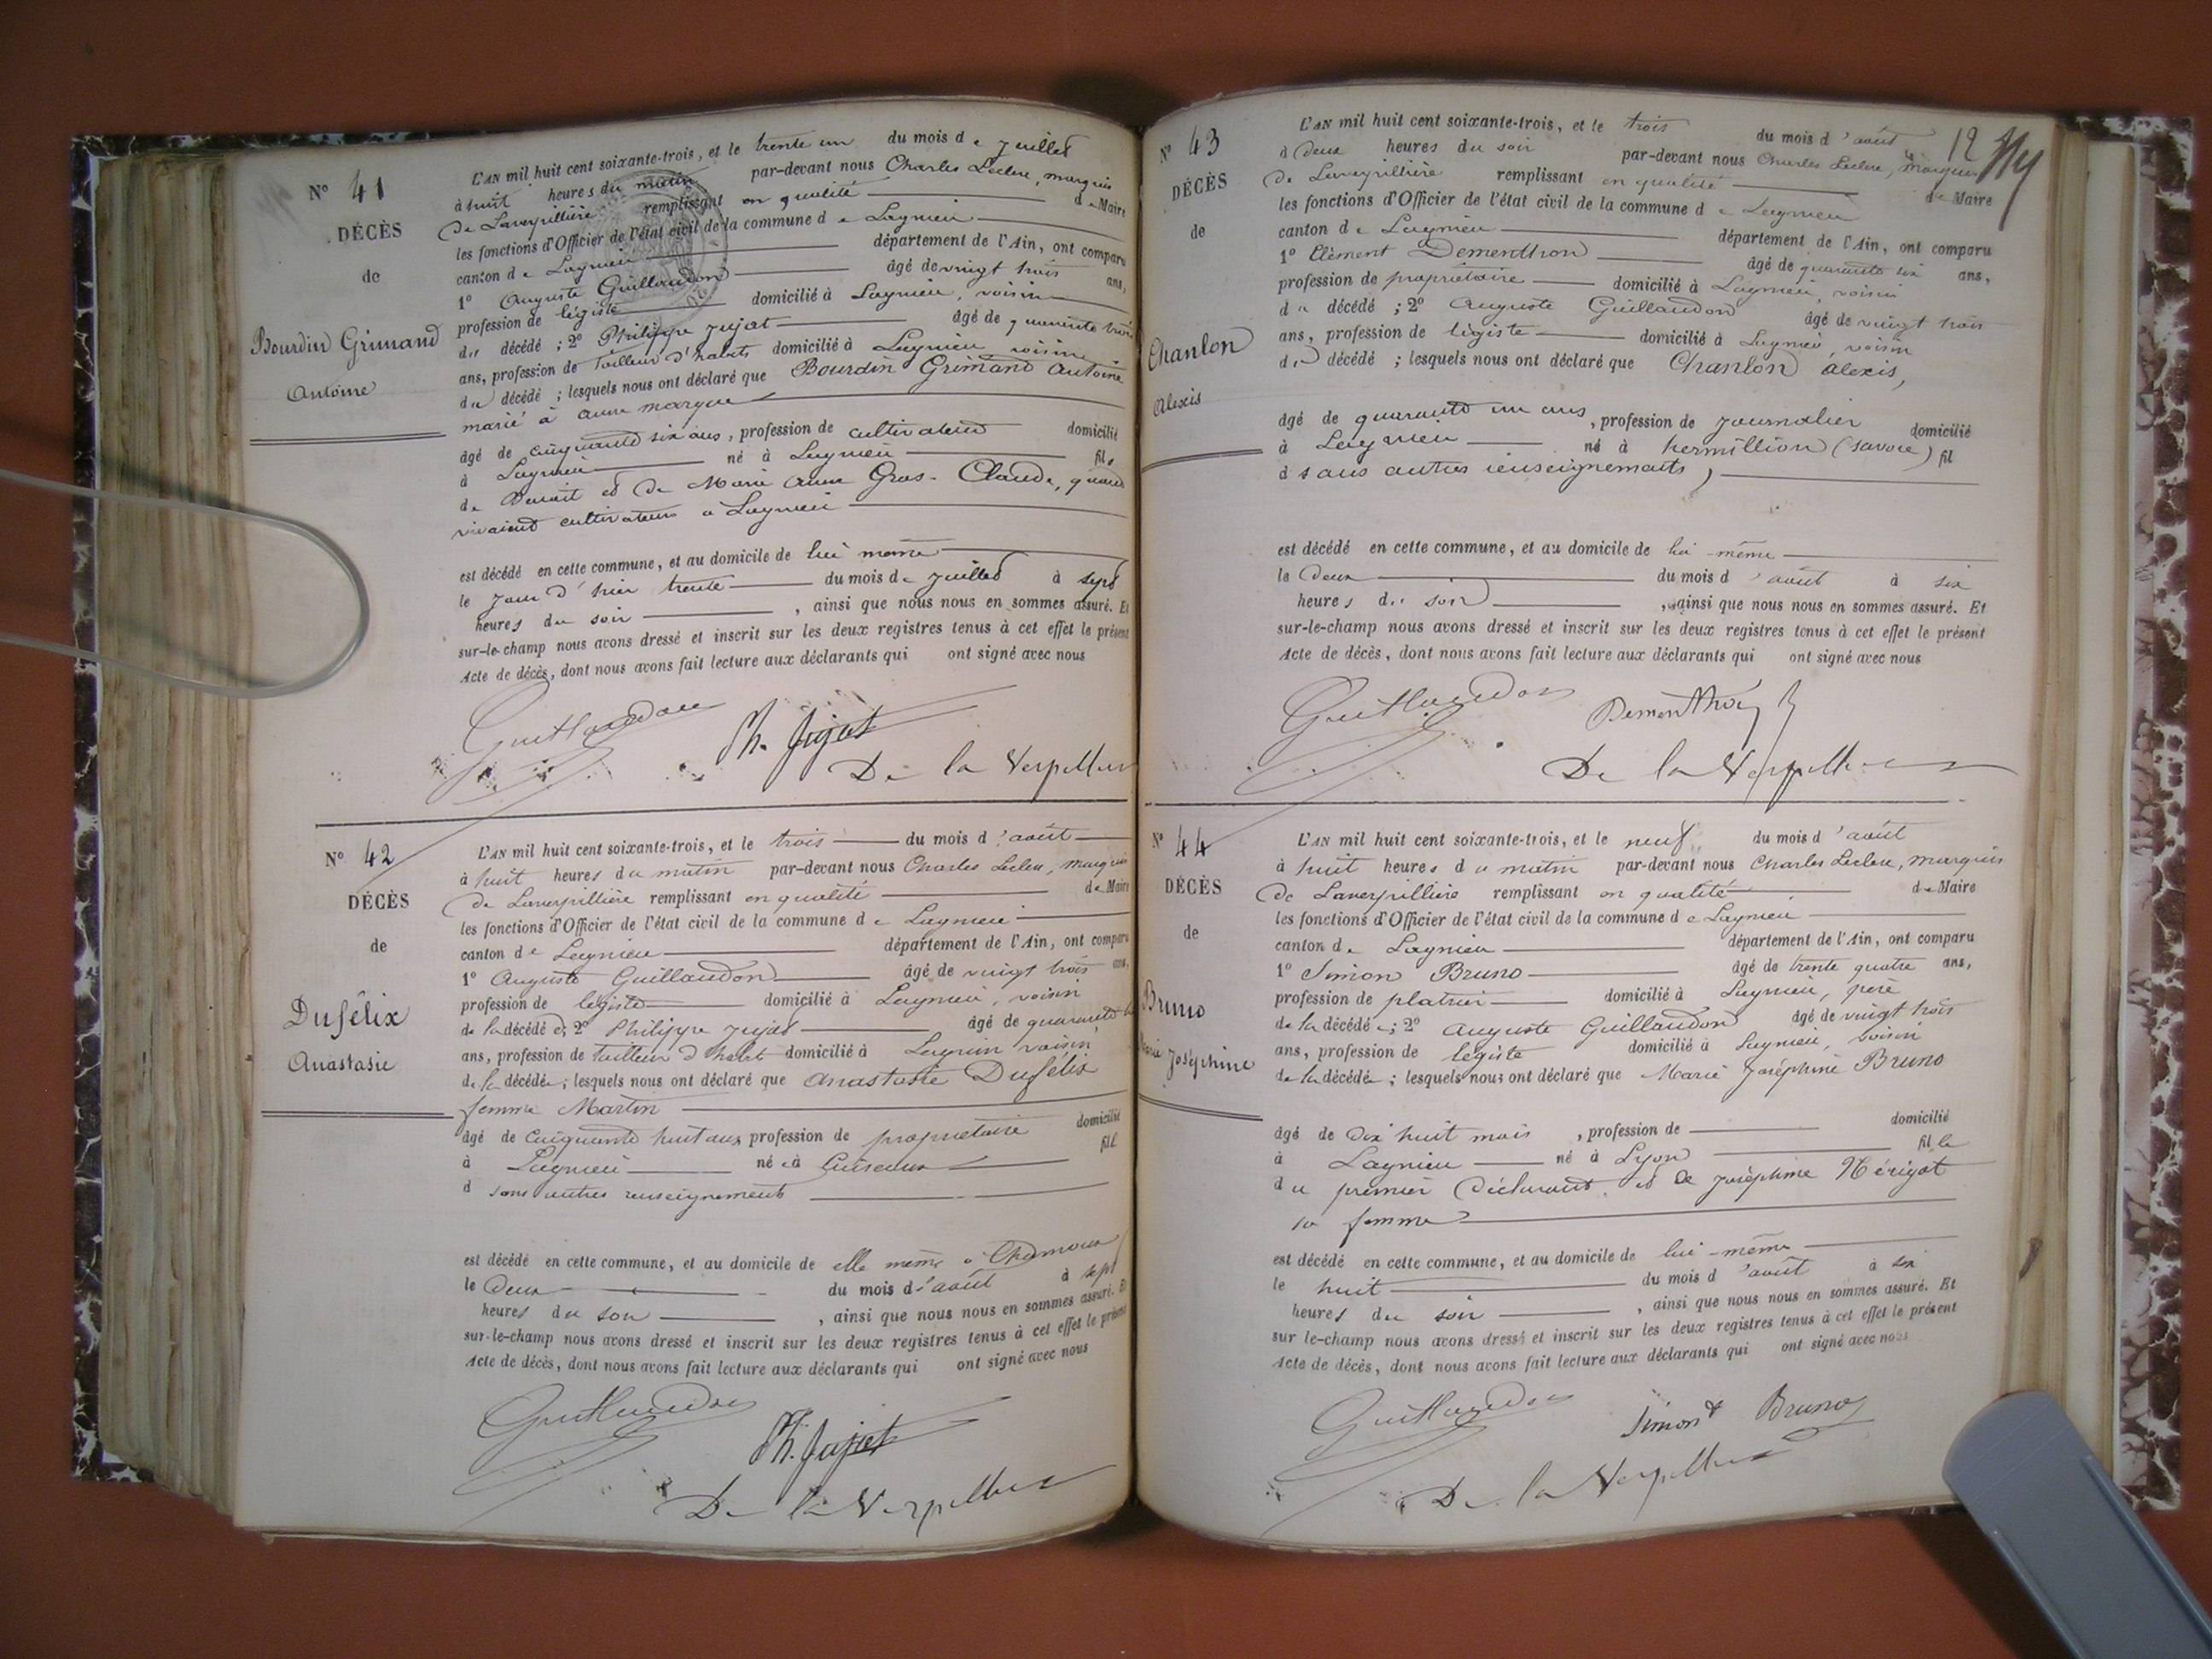 N° 41
DÉCÈS
de
Bourdin Grimand
Antoine
L'AN mil huit cent soixante-trois, et le trente un du mois de juillet
à huit heures du matin par-devant nous Charles Leclerc, marquis
De Laverpillière remplissant en qualité de Maire
les fonctions d'Officier de l'état civil de la commune de Lagnieu
canton de Lagnieu département de l'Ain, ont comparu
1° Auguste Guillaudon âgé de vingt trois ans,
profession de légiste domicilié à Lagnieu, voisin
du décédé ; 2° Philippe Jujat âgé de quarante trois
ans, profession de tailleur d'habits domicilié à Lagnieu voisin
du décédé ; lesquels nous ont déclaré que Bourdin Grimand Antoine
marié à anne
âgé de cinquante six ans, profession de cultivateur domicilié
à Lagnieu né à Lagnieu fils
de Benoit et de Marie Anne Gros-Claude, quand
vivaient cultivateurs à Lagnieu
est décédé en cette commune, et au domicile de lui même
le jour d'hier trente du mois de juillet à sept
heures du soir , ainsi que nous nous en sommes assuré. Et
sur-le-champ nous avons dressé et inscrit sur les deux registres tenus à cet effet le présent
Acte de décès, dont nous avons fait lecture aux déclarants qui ont signé avec nous
Guillaudon
Ph. Jujat
De la Verpillière
N° 42
DÉCÈS
de
Dufélix
Anastasie
L'AN mil huit cent soixante-trois, et le trois du mois d'août
à huit heures du matin par-devant nous Charles Leclerc, marquis
De Laverpillière remplissant en qualité de Maire
les fonctions d'Officier de l'état civil de la commune de Lagnieu
canton de Lagnieu département de l'Ain, ont comparu
1° Auguste Guillaudon âgé de vingt trois ans,
profession de légiste domicilié à Lagnieu, voisin
de la décédée; 2° Philippe Jujat âgé de quarante
ans, profession de tailleur d'habit domicilié à Lagnieu voisin
de la décédée ; lesquels nous ont déclaré que Anastasie Dufélix
femme Martin
âgé de cinquante huit ans profession de propriétaire domicilié
à Lagnieu née à Cuiseaux fille
d sans autres renseignements
est décédé en cette commune, et au domicile de elle même à Chamoux
le deux du mois d'août à sept
heures du soir , ainsi que nous nous en sommes assuré. Et
sur-le-champ nous avons dressé et inscrit sur les deux registres tenus à cet effet le présent
Acte de décès, dont nous avons fait lecture aux déclarants qui ont signé avec nous
Guillaudon
Ph. Jujat
De la Verpillière
12
N° 43
DÉCÈS
de
Chanlon
Alexis
L'AN mil huit cent soixante-trois, et le trois du mois d'août
à deux heures du soir par-devant nous Charles Leclerc, Marquis
De Laverpillière remplissant en qualité de Maire
les fonctions d'Officier de l'état civil de la commune de Lagnieu
canton de Lagnieu département de l'Ain, ont comparu
1° Clément Dementhon âgé de quarante six ans,
profession de propriétaire domicilié à Lagnieu, voisin
du décédé ; 2° Auguste Guillaudon âgé de vingt trois
ans, profession de légiste domicilié à Lagnieu, voisin
du décédé ; lesquels nous ont déclaré que Chanlon alexis,
âgé de quarante un ans, profession de journalier domicilié
à Lagnieu né à hermillion (savoie) fil
d sans autres renseignements,
est décédé en cette commune, et au domicile de lui-même
le deux du mois d'août à six
heures du soir , ainsi que nous nous en sommes assuré. Et
sur-le-champ nous avons dressé et inscrit sur les deux registres tenus à cet effet le présent
Acte de décès, dont nous avons fait lecture aux déclarants qui ont signé avec nous
Guillaudon
Dementhon
De la Verpillière
N° 44
DÉCÈS
de
Bruno
Marie Joséphine
L'AN mil huit cent soixante-trois, et le neuf du mois d'août
à huit heures du matin par-devant nous Charles Leclerc, marquis
De Laverpillière remplissant en qualité de Maire
les fonctions d'Officier de l'état civil de la commune de Lagnieu
canton de Lagnieu département de l'Ain, ont comparu
1° Simon Bruno âgé de trente quatre ans,
profession de platrier domicilié à Lagnieu, père
de la décédée; 2° Auguste Guillaudon âgé de vingt trois
ans, profession de légiste domicilié à Lagnieu, voisin
de la décédée ; lesquels nous ont déclaré que Marie Joséphine Bruno
âgé de dix huit mois , profession de domicilié
à Lagnieu né à Lyon fille
du premier déclarant, et de Joséphine Mérigot
sa femme
est décédé en cette commune, et au domicile de lui-même
le huit du mois d'août à six
heures du soir , ainsi que nous nous en sommes assuré. Et
sur le-champ nous avons dressé et inscrit sur les deux registres tenus à cet effet le présent
Acte de décès, dont nous avons fait lecture aux déclarants qui ont signé avec nous
Guillaudon
Simond Bruno
De la Verpillière